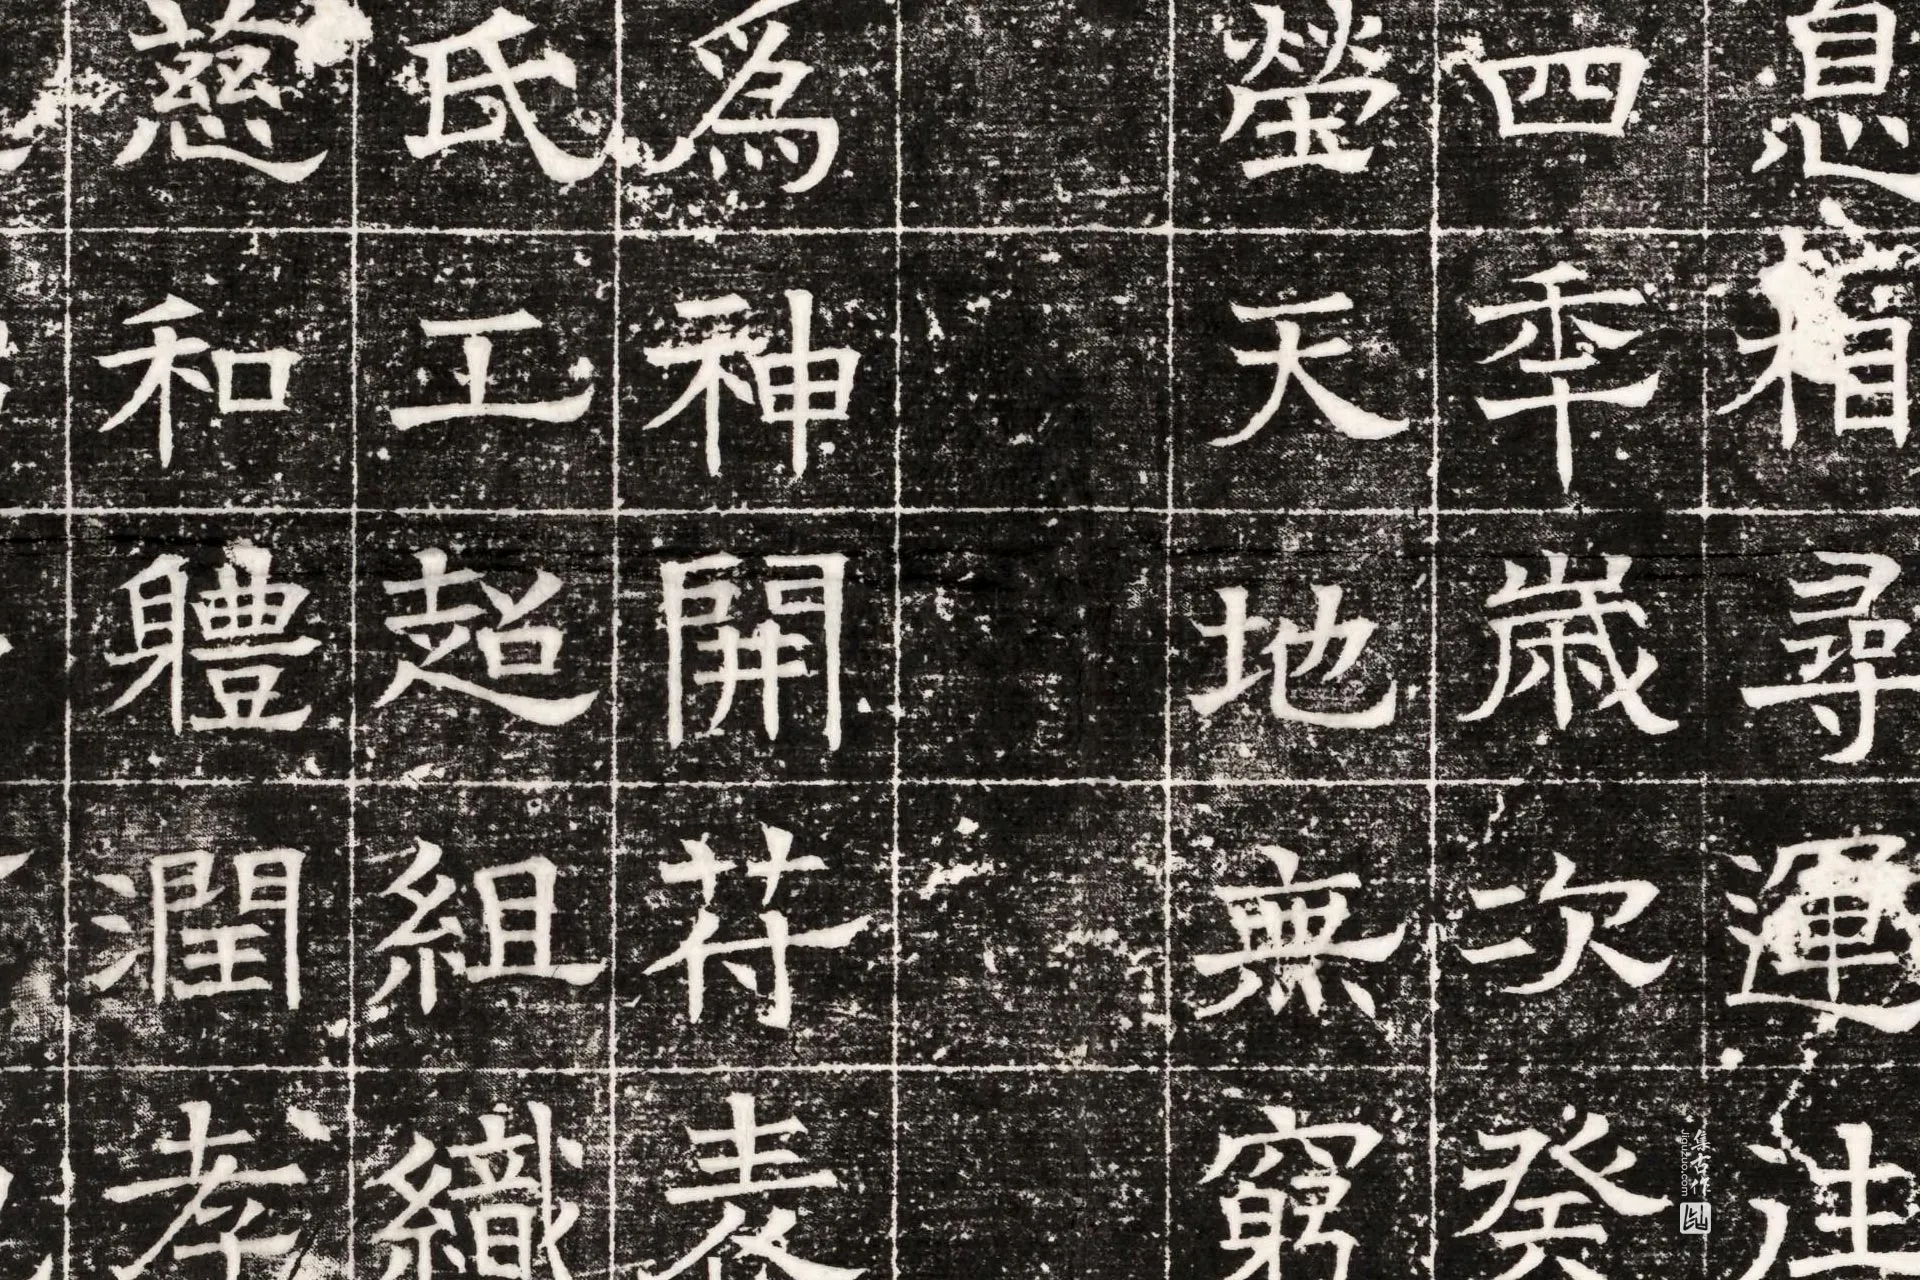 息相尋運往
四秊歲次癸
塋天地無窮
為神開苻表
氏工超組織
慈和軆潤孝
集古作
Jiguzuo.com